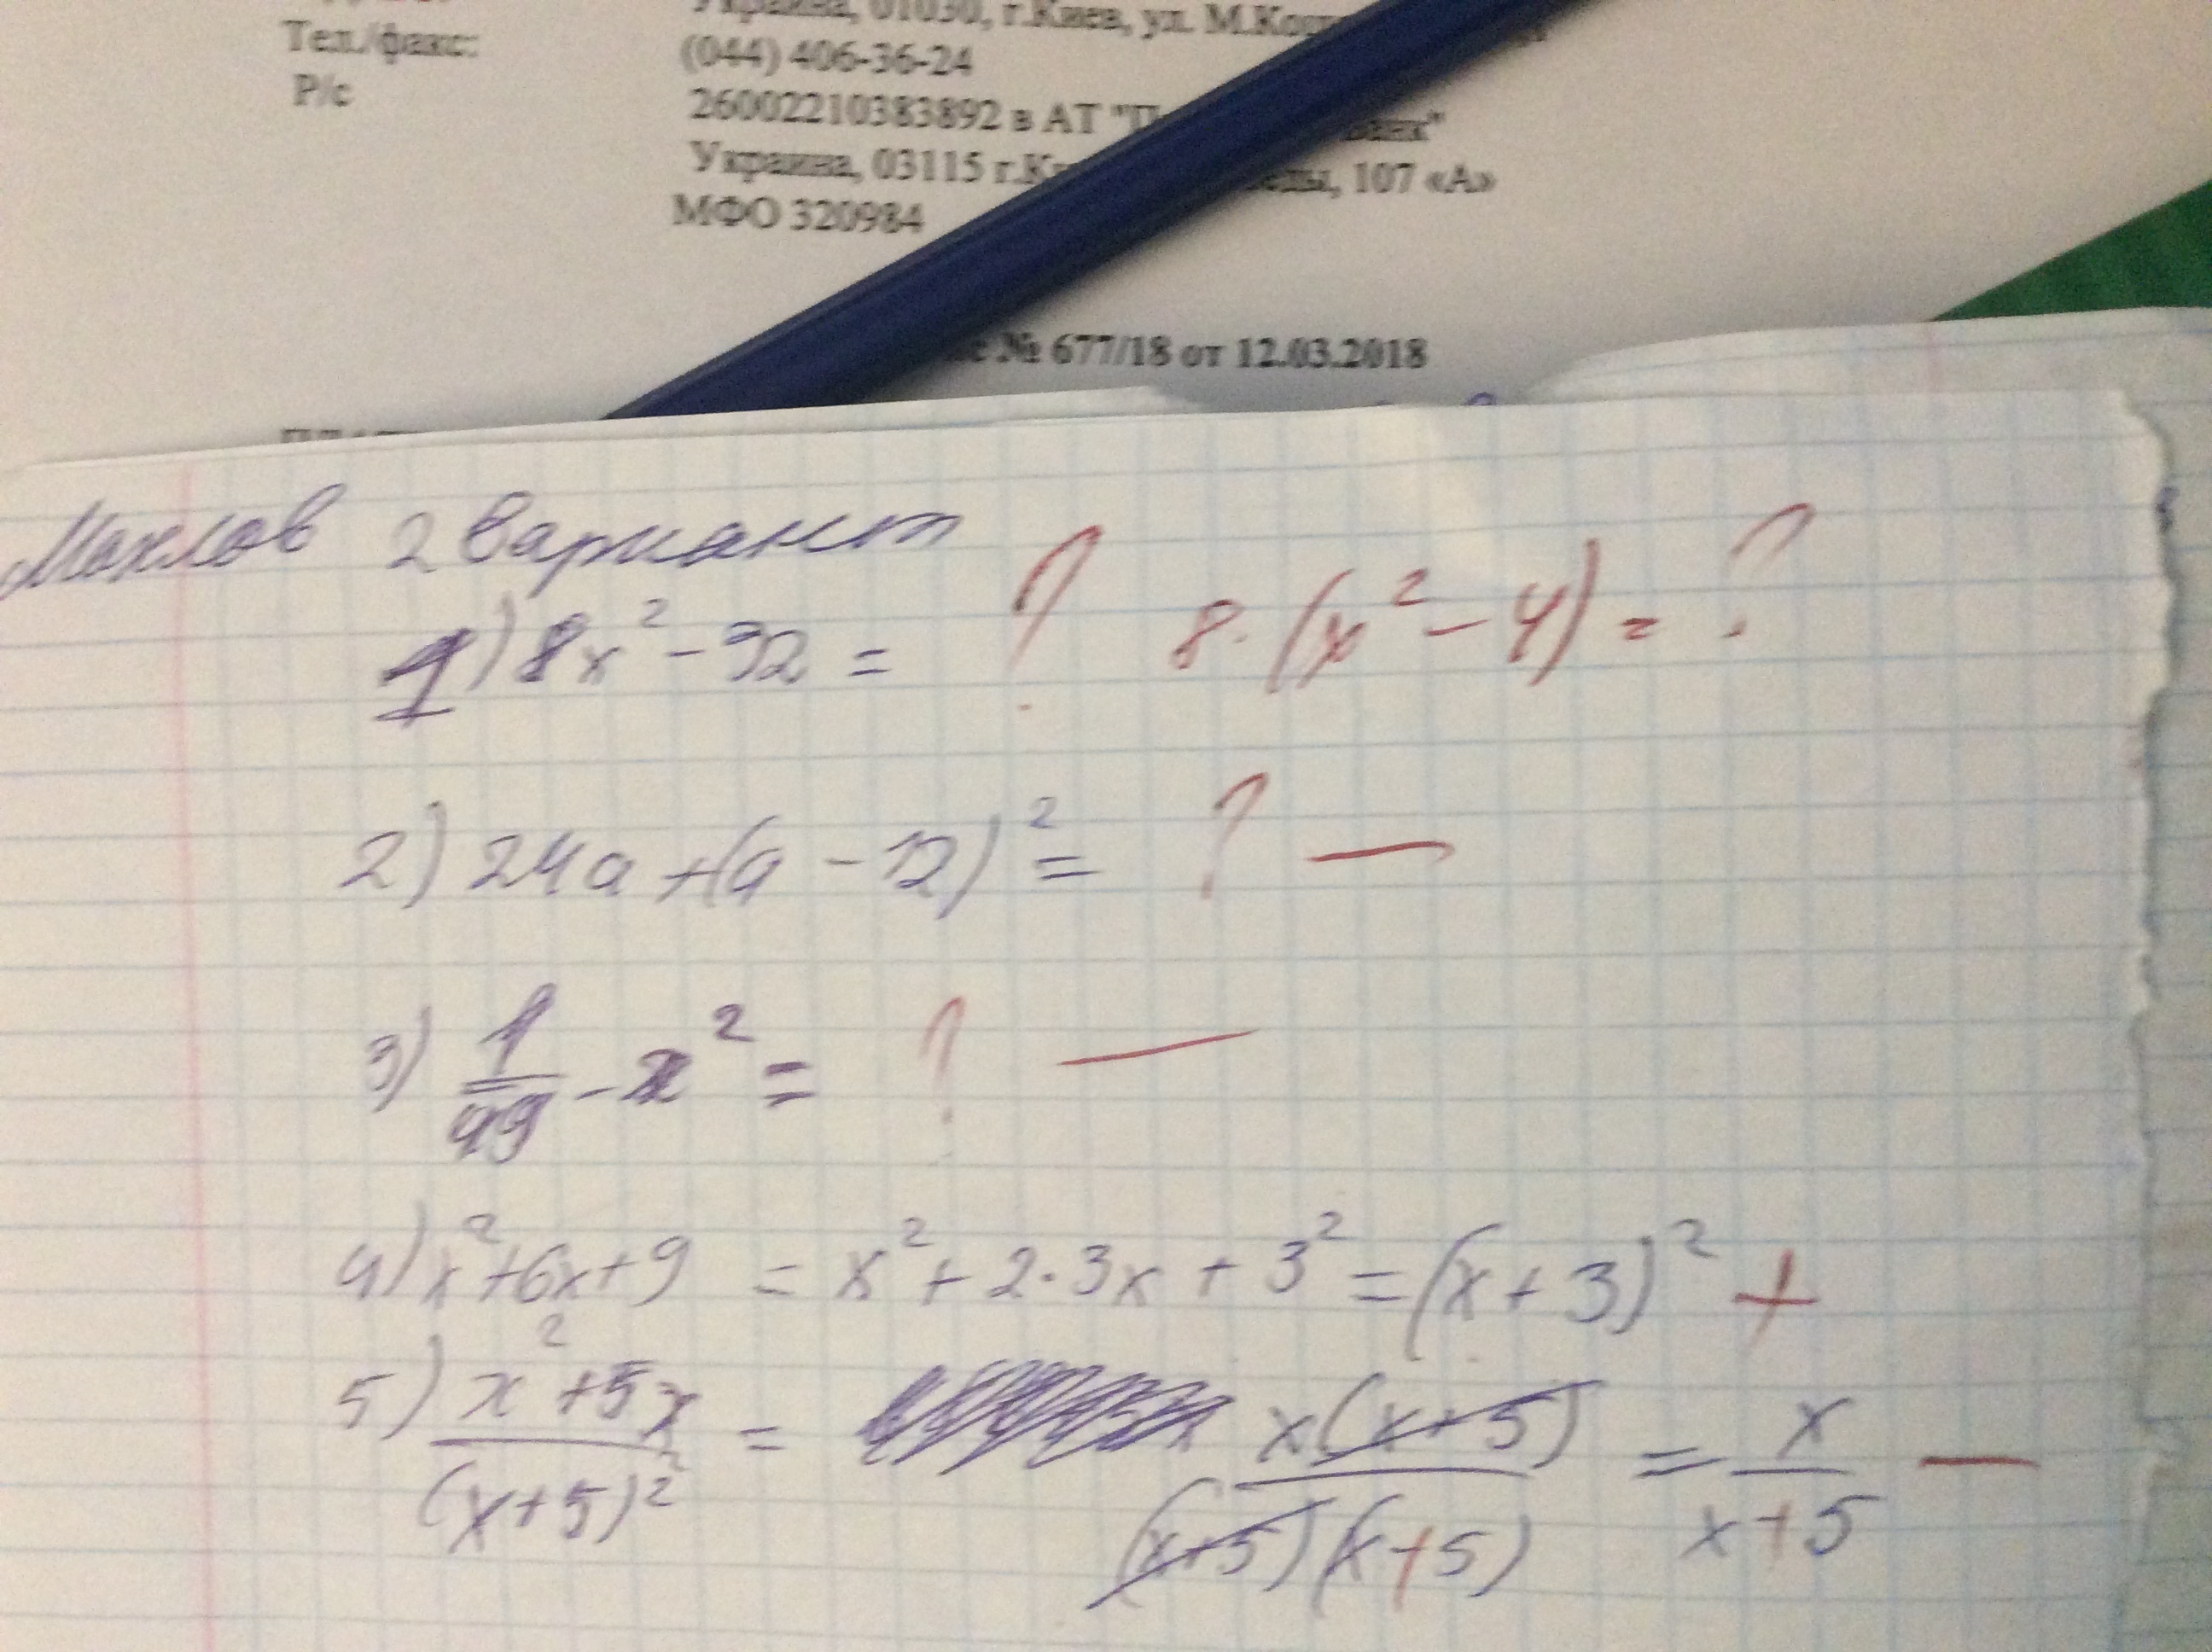 Украина, 01030, г.Киев, ул. М.Коц
Тел./факс: (044) 406-36-24
Р/с 26002210383892 в АТ "П банк"
Украина, 03115 г.К еды, 107 «А»
МФО 320984
№ 677/18 от 12.03.2018
2 Вариант
1) 8x² - 32 = ? 8·(x² - 4) = ?
2) 24a + (a - 12)² = ? —
3) 1/49 - x² = ? —
4) x² + 6x + 9 = x² + 2·3x + 3² = (x + 3)² +
5) (x² + 5x)/(x+5)² = x(x+5)/((x+5)(x+5)) = x/(x+5) —